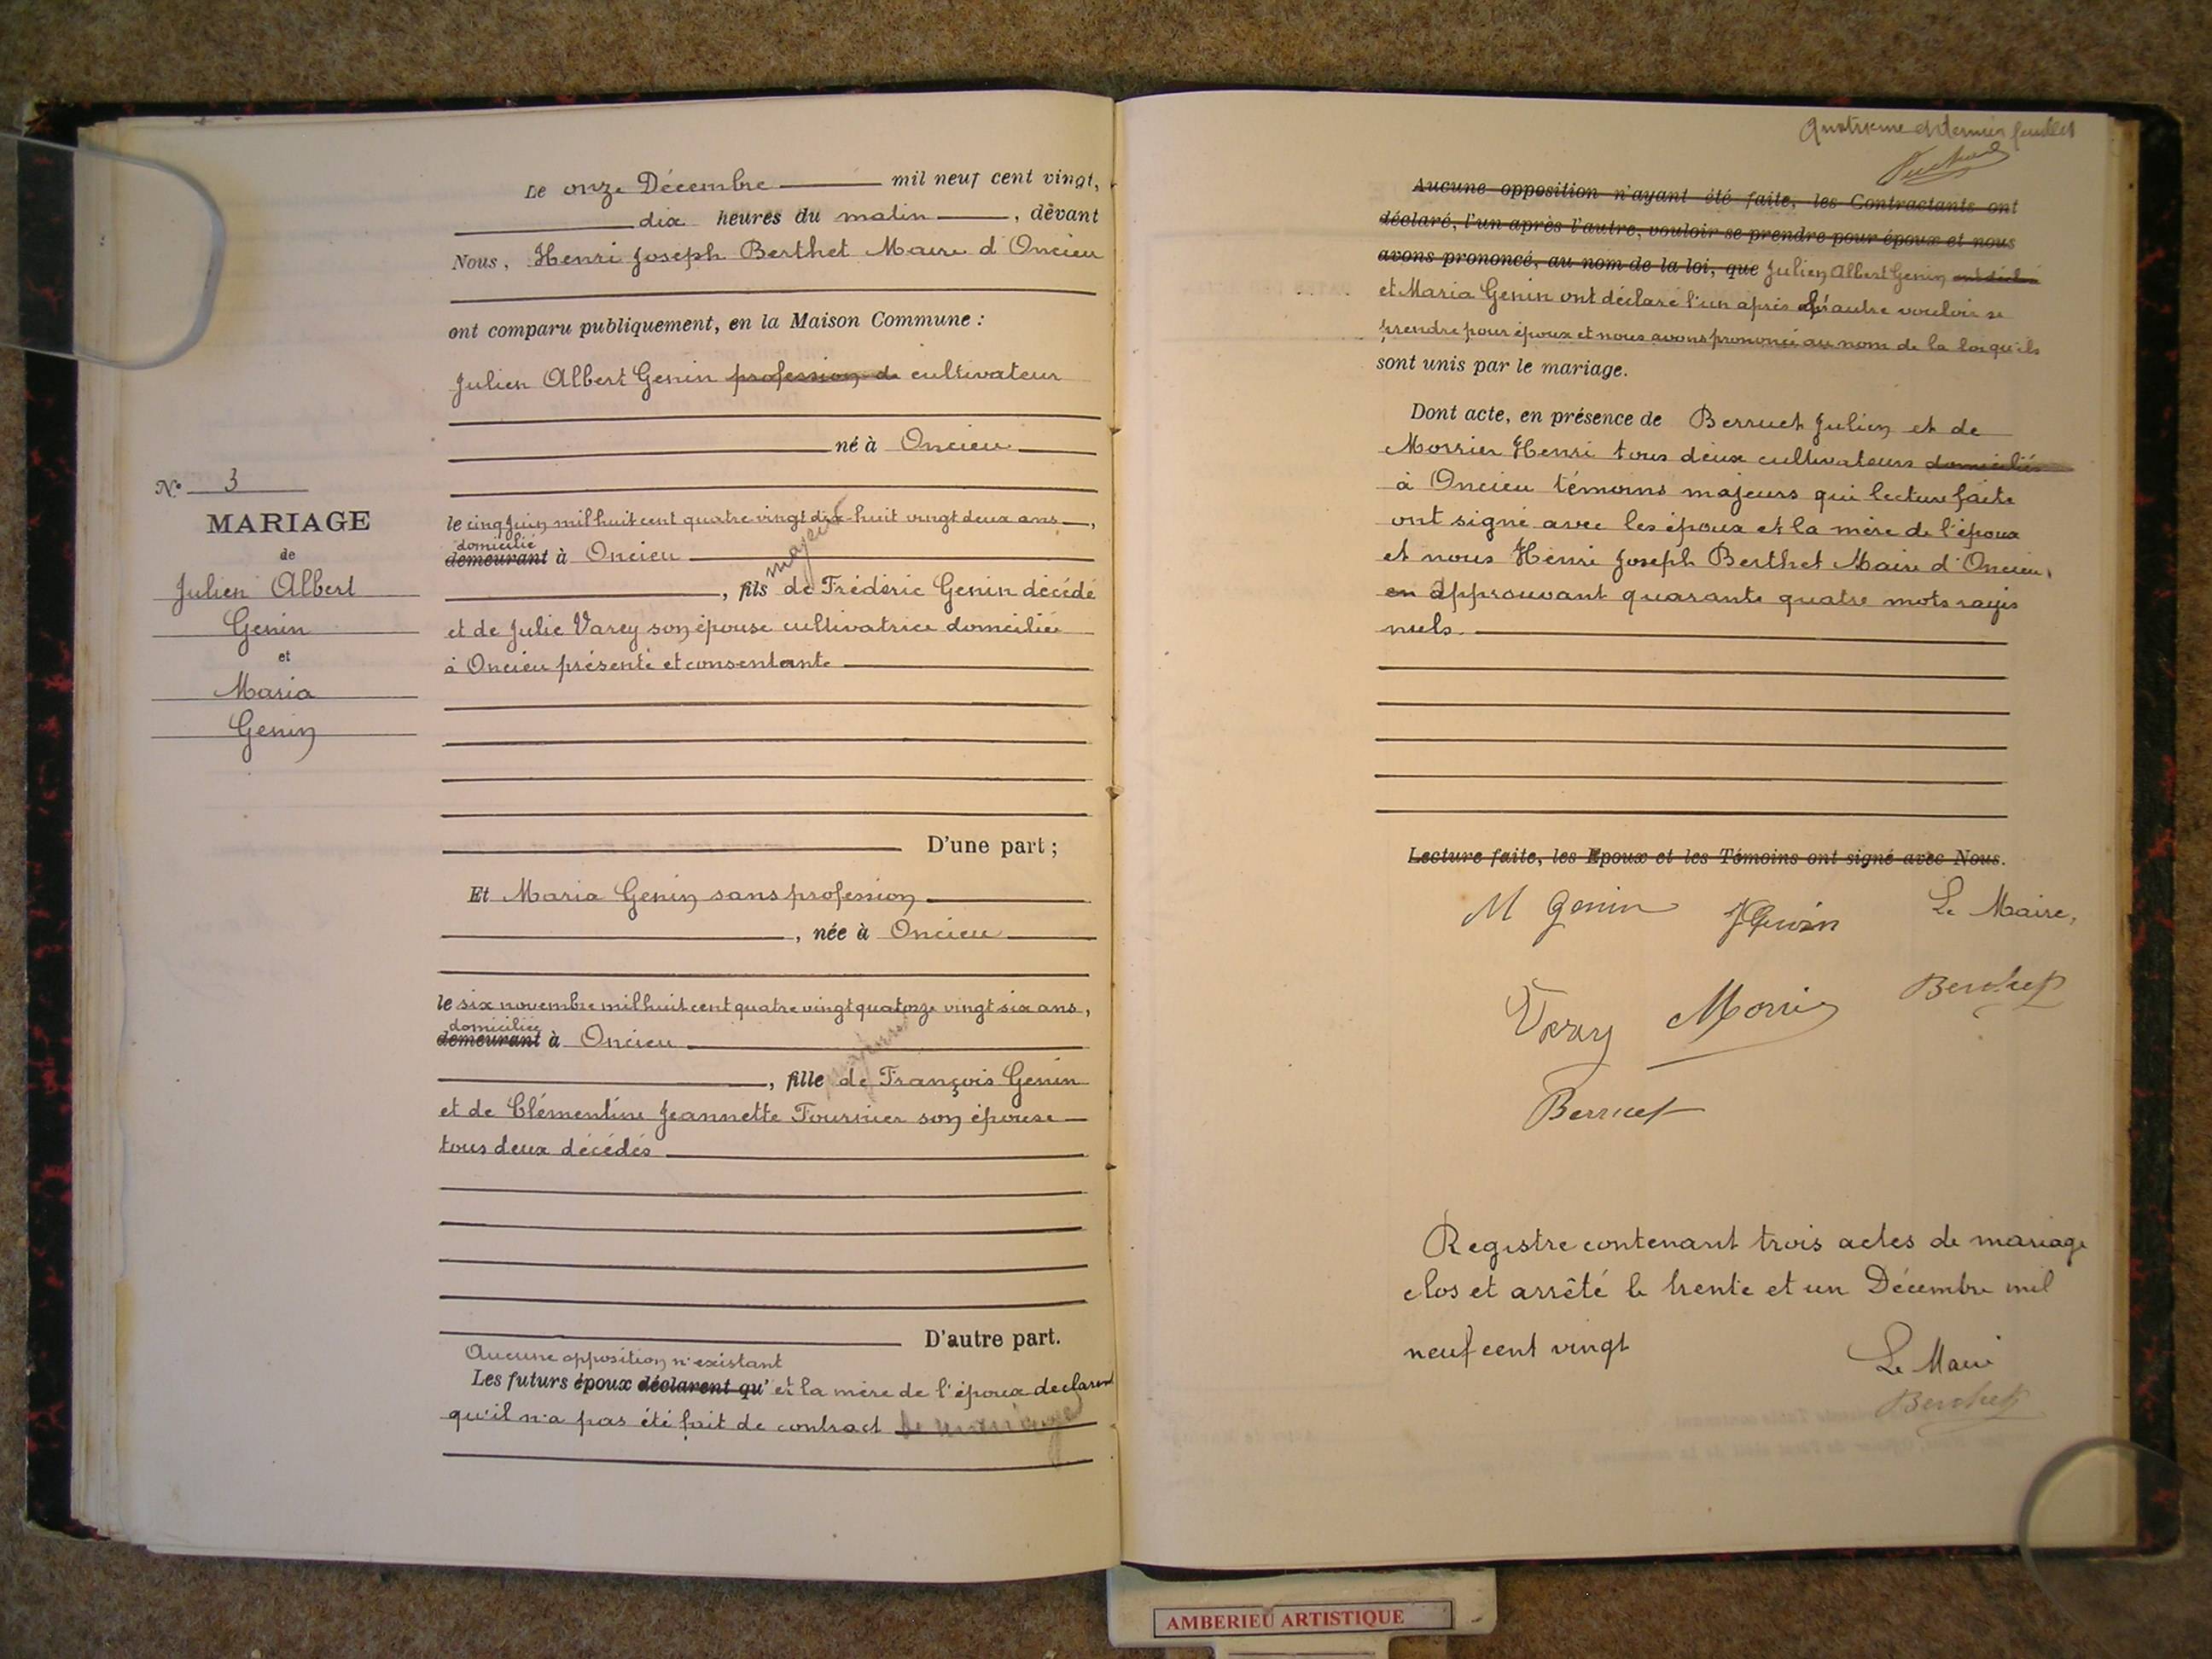 Le onze Décembre mil neuf cent vingt,
dix heures du matin, devant
Nous, Henri Joseph Berthet Maire d'Oncieu
ont comparu publiquement, en la Maison Commune :
Julien Albert Genin profession de cultivateur
né à Oncieu
le cinq juin mil huit cent quatre vingt dix-huit vingt deux ans,
domicilié
demeurant à Oncieu
majeur
, fils de Frédéric Genin décédé
et de Julie Varey son épouse cultivatrice domiciliée
à Oncieu présente et consentante
D'une part ;
Et Maria Genin sans profession
, née à Oncieu
le six novembre mil huit cent quatre vingt quatorze vingt six ans,
domiciliée
demeurant à Oncieu
majeure
, fille de François Genin
et de Clémentine Jeannette Fournier son épouse
tous deux décédés
D'autre part.
Aucune opposition n'existant
Les futurs époux déclarent qu' et la mère de l'époux declarent
qu'il n'a pas été fait de contract de mariage
N° 3
MARIAGE
de
Julien Albert
Genin
et
Maria
Genin
Quatrième et dernier feuillet
Aucune opposition n'ayant été faite, les Contractants ont
déclaré, l'un après l'autre, vouloir se prendre pour époux et nous
avons prononcé, au nom de la loi, que Julien Albert Genin
et Maria Genin ont déclaré l'un après l'autre vouloir se
prendre pour époux et nous avons prononcé au nom de la loi qu'ils
sont unis par le mariage.
Dont acte, en présence de Berruet Julien et de
Morrier Henri tous deux cultivateurs domiciliés
à Oncieu témoins majeurs qui lecture faite
ont signé avec les époux et la mère de l'époux
et nous Henri Joseph Berthet Maire d'Oncieu,
en approuvant quarante quatre mots rayés
nuls.
Lecture faite, les Epoux et les Témoins ont signé avec Nous.
M Genin JGenin Le Maire,
Varey Morrier Berthet
Berruet
Registre contenant trois actes de mariage
clos et arrêté le trente et un Décembre mil
neuf cent vingt
Le Maire
Berthet
AMBERIEU ARTISTIQUE